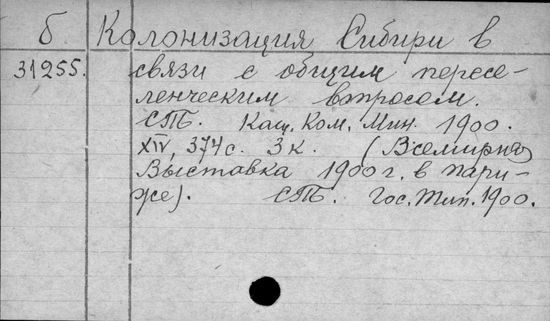 б Колонизация Сибири в
31255. связи с общим пересе-
ленческим вопросом.
СПБ. Канц. Ком. Мин. 1900.
XIV, 374 с. 3 к. (Всемирная
Выставка 1900 г. в Пари-
же). СПБ. Гос. Тип. 1900.